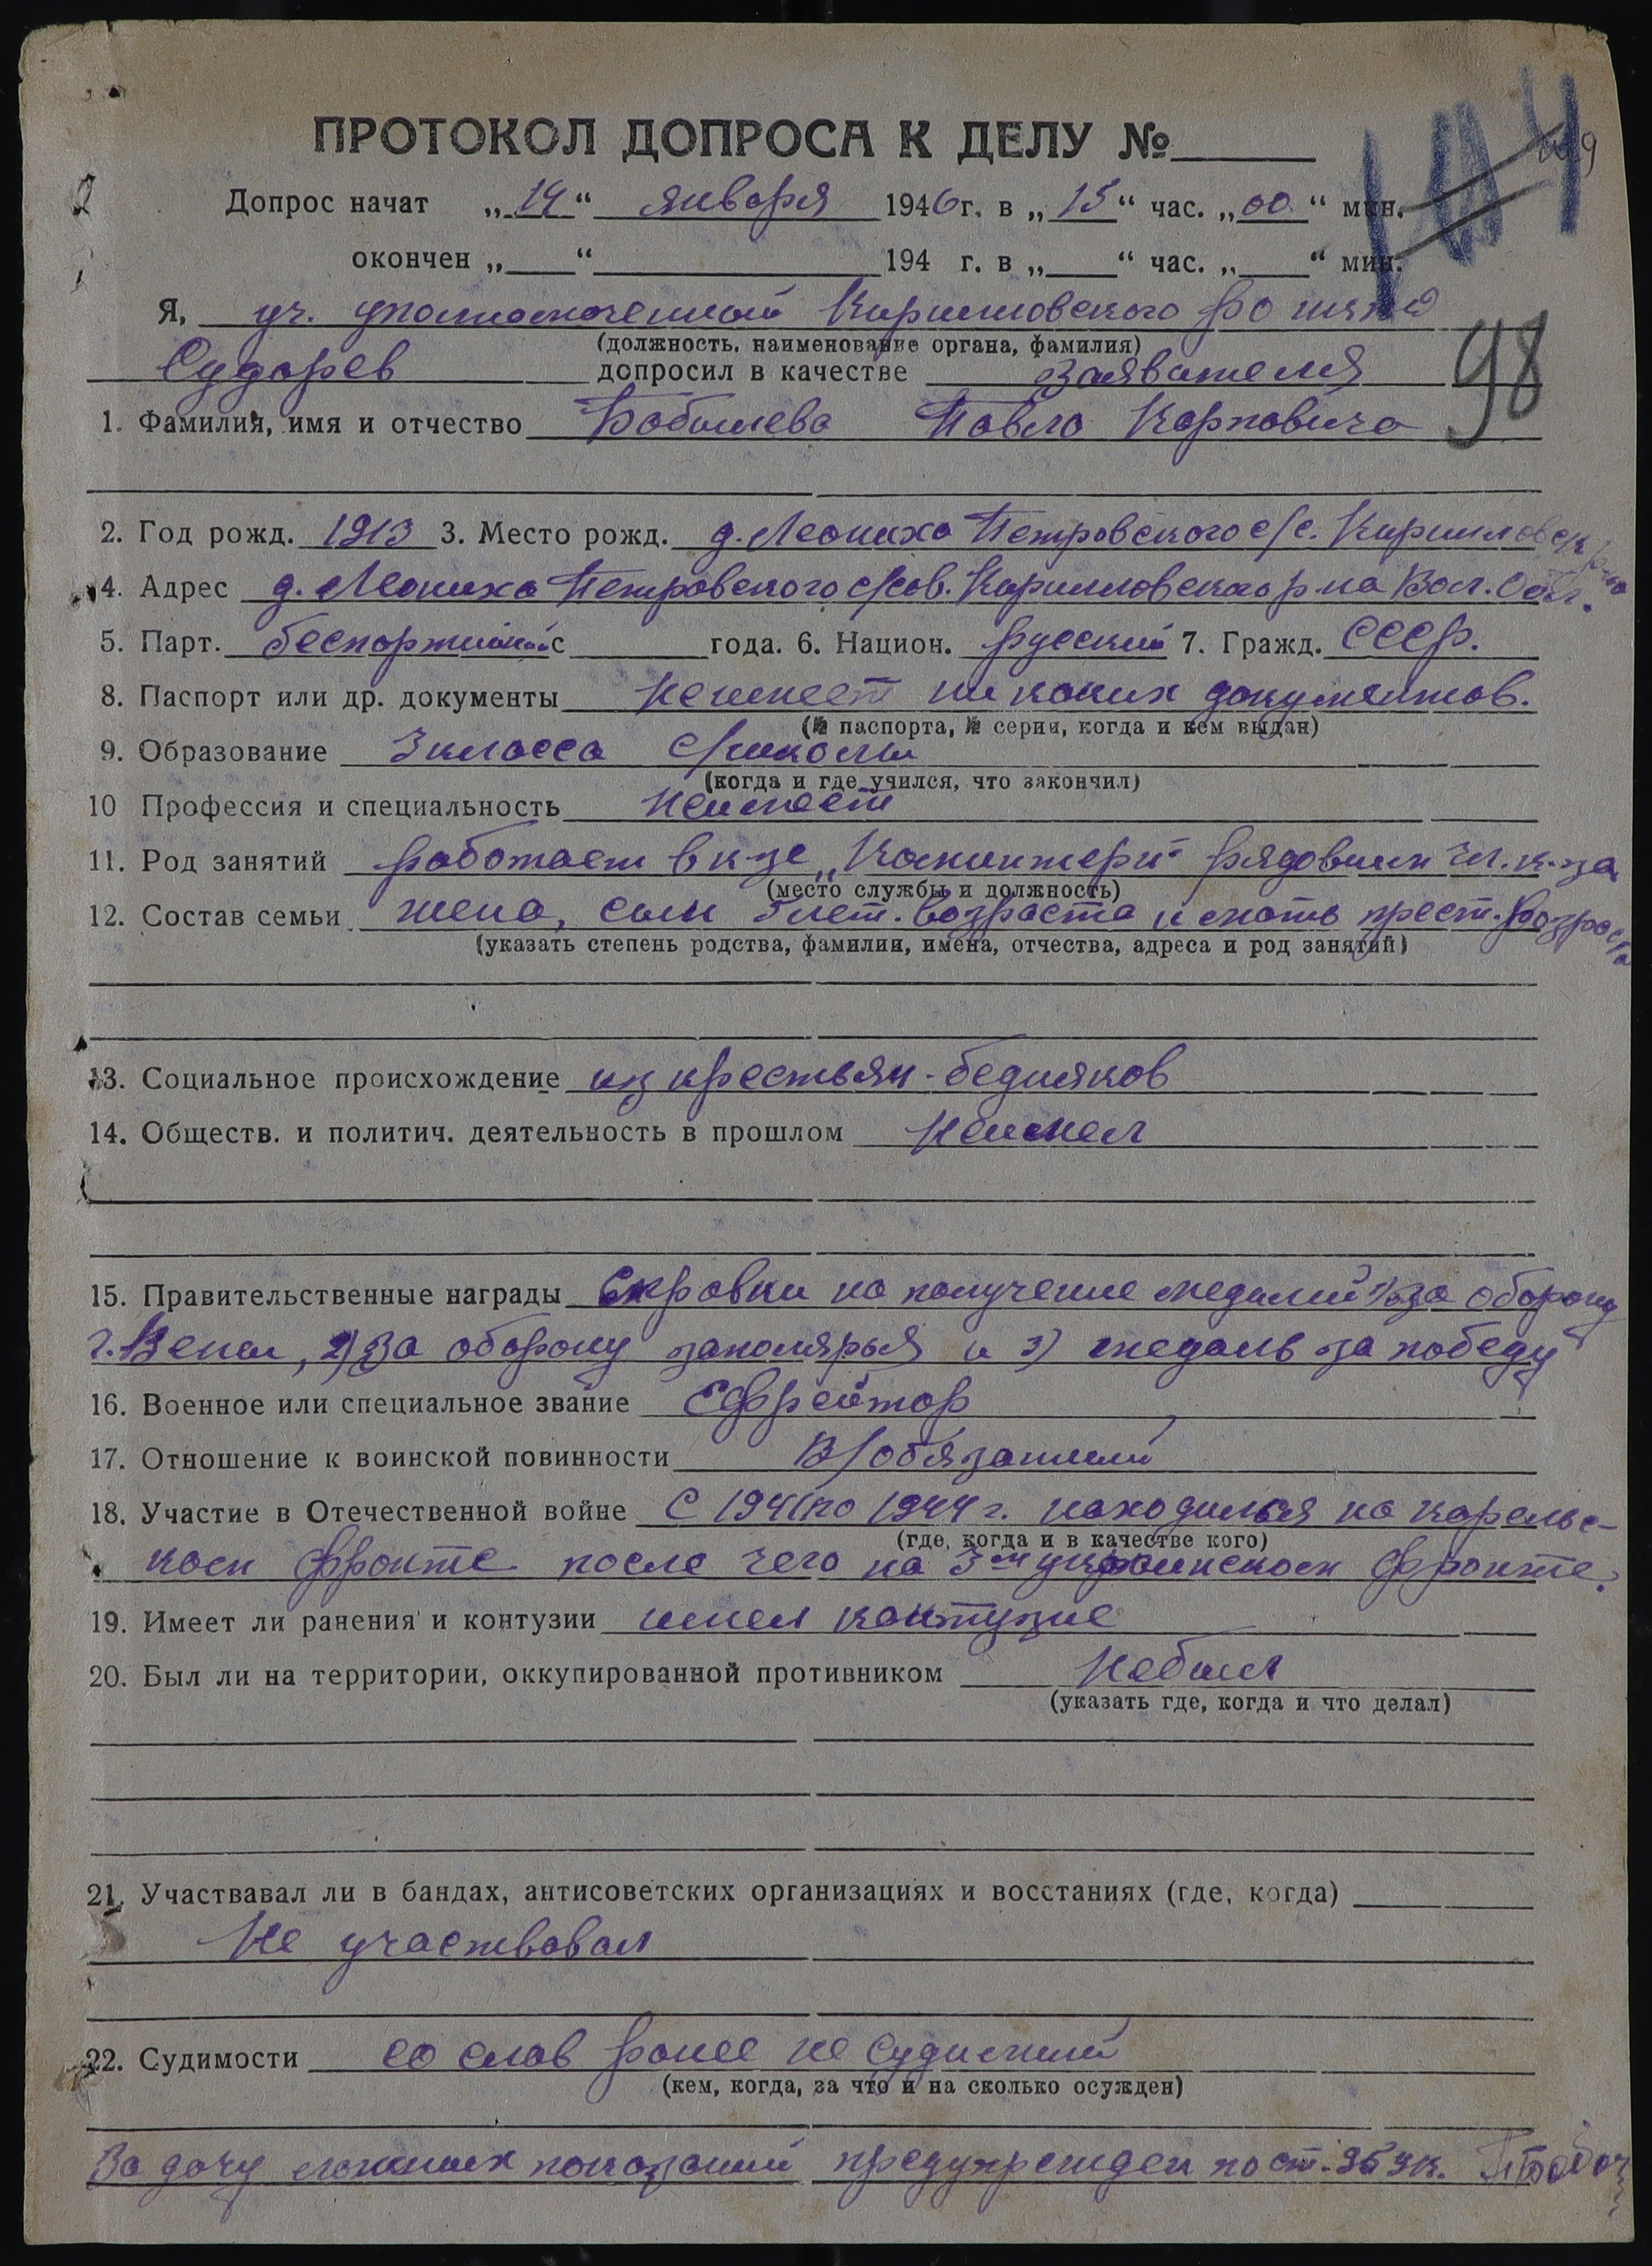 ПРОТОКОЛ ДОПРОСА К ДЕЛУ №
Допрос начат „14“ января 1946 г. в „15“ час. „00“ мин.
окончен „ “ 194 г. в „ “ час. „ “ мин.
Я, уч. уполномоченный Кирилловского РО НКВД
(должность, наименование органа, фамилия)
Сударев допросил в качестве Заявителя
98
1. Фамилия, имя и отчество Бобылева Павла Карповича
2. Год рожд. 1913 3. Место рожд. д. Леониха Петровского с/с. Кирилловск
4. Адрес д. Леониха Петровского с/сов. Кирилловского р-на Вол. Обл.
5. Парт. беспартийный с года. 6. Национ. русский 7. Гражд. СССР.
8. Паспорт или др. документы неимеет ни каких документов.
(№ паспорта, № серии, когда и кем выдан)
9. Образование 3 класса с/школы
(когда и где учился, что закончил)
10 Профессия и специальность Неимеет
11. Род занятий работает в к-зе „Коминтерн“ рядовым чл. к-за
(место службы и должность)
12. Состав семьи жена, сын лет. возраста и мать прест. возраста
(указать степень родства, фамилии, имена, отчества, адреса и род занятий)
13. Социальное происхождение из крестьян-бедняков
14. Обществ. и политич. деятельность в прошлом Неимел
15. Правительственные награды Справки на получение медалий 1) за оборону
г. Вены, 2) За оборону заполярья и 3) медаль за победу
16. Военное или специальное звание Ефрейтор
17. Отношение к воинской повинности В/обязанный
18. Участие в Отечественной войне С 1941 по 1944 г. находился на карельс-
(где, когда и в качестве кого)
ком фронте после чего на 3-м украинском фронте.
19. Имеет ли ранения и контузии имел контузие
20. Был ли на территории, оккупированной противником Небыл
(указать где, когда и что делал)
21. Участвавал ли в бандах, антисоветских организациях и восстаниях (где, когда)
Не участвовал
22. Судимости со слов ранее не судимый
(кем, когда, за что и на сколько осужден)
За дачу ложных показаний предупрежден по ст. 95 УК.